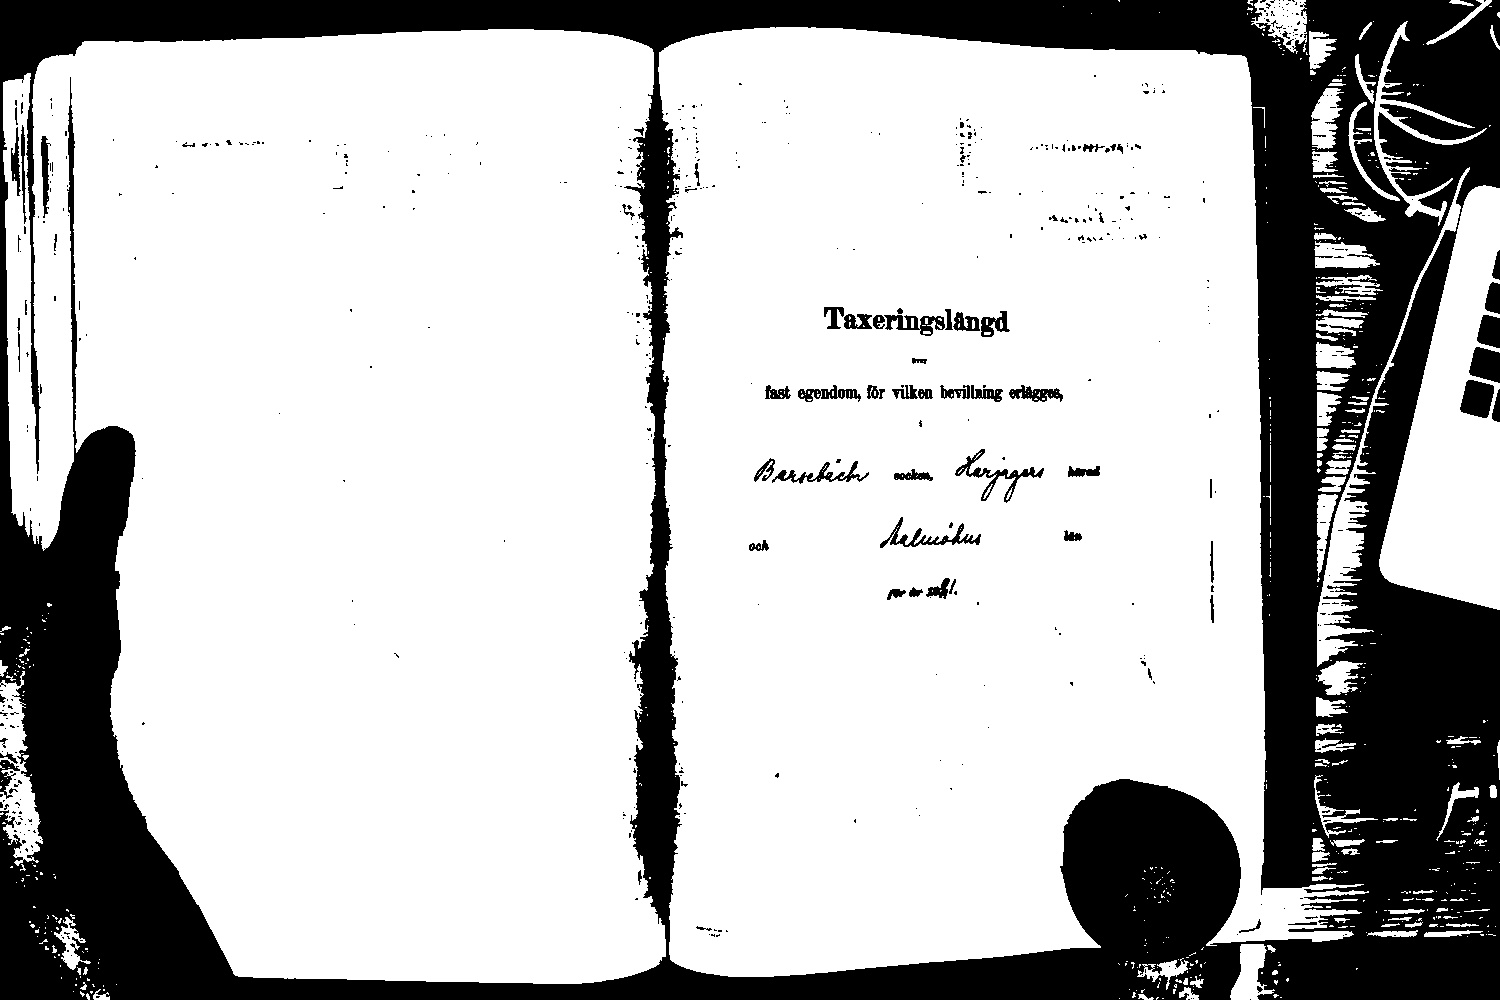 Taxeringslängd
över
fast egendom, för vilken bevillning erlägges,
i
Barsebäck socken, Harjagers härad
och Malmöhus län
för år